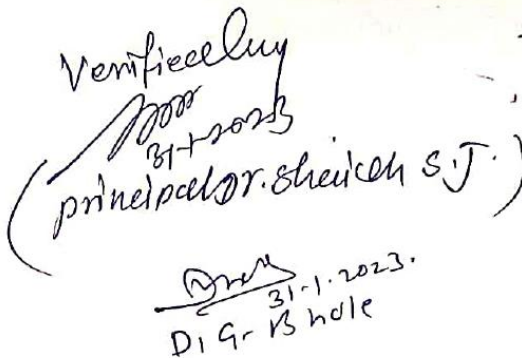 Verified by
31-1-2023
(principal Dr. Shaikh S.J.)
31-1-2023.
D.G. Bhole